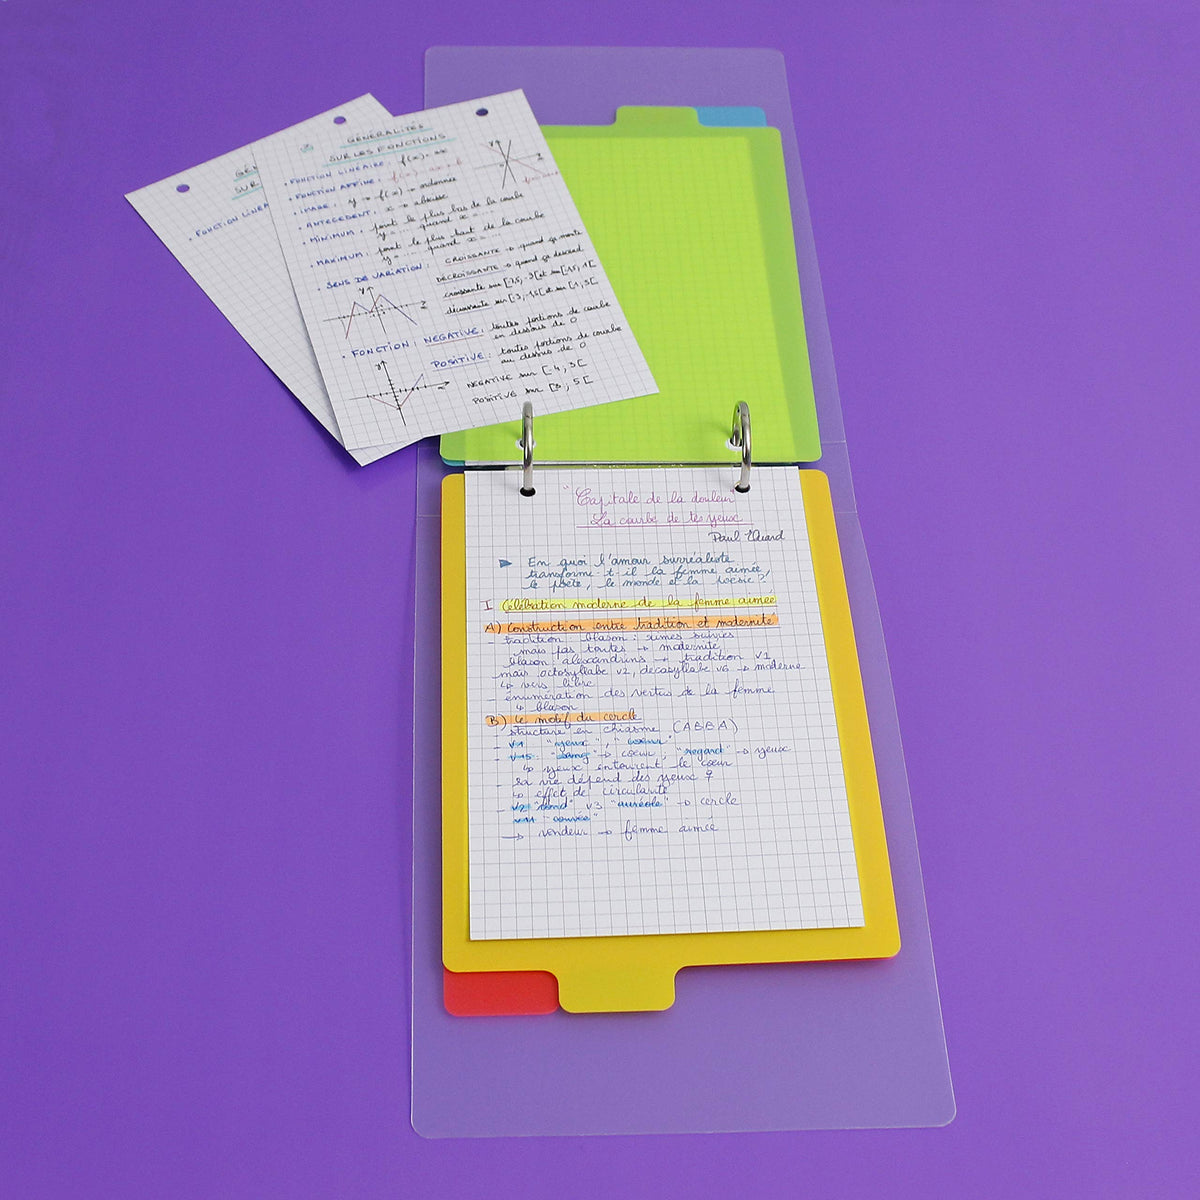 GÉN
SUR
• FONCTION LINÉA
GÉNÉRALITÉS
SUR LES FONCTIONS
• FONCTION LINÉAIRE : f(x) = ax
• FONCTION AFFINE : f(x) = ax + b
• IMAGE : y → f(x) → ordonnée
• ANTÉCÉDENT : x → abscisse
• MINIMUM : point le plus bas de la courbe
y = ... quand x = ...
• MAXIMUM : point le plus haut de la courbe
y = ... quand x = ...
• SENS DE VARIATION : CROISSANTE → quand ça monte
DÉCROISSANTE → quand ça descend
croissante sur
décroissante sur
• FONCTION : NÉGATIVE : toutes portions de courbe
en dessous de 0
POSITIVE : toutes portions de courbe
au dessus de 0
NÉGATIVE sur [-4 ; 3[
POSITIVE sur [3 ; 5[
"Capitale de la douleur"
La courbe de tes yeux
Paul Eluard
En quoi l'amour surréaliste
transforme-t-il la femme aimée,
le poète, le monde et la poésie ?
I Célébration moderne de la femme aimée
A) Construction entre tradition et modernité
- tradition blason : rimes suivies
mais pas toutes → modernité
blason : alexandrins → tradition v1
mais octosyllabe v2, décasyllabe v6 → moderne
↳ vers libre
- énumération des vertus de la femme
↳ blason
B) le motif du cercle
- structure en chiasme (ABBA)
- v1 "yeux", "coeur"
- v15 "sang" → coeur ; "regard" → yeux
↳ yeux entourent le coeur
- sa vie dépend des yeux ♀
↳ effet de circularité
- v2 "rond" v3 "auréole" → cercle
v11 "couvée"
→ rondeur → femme aimée